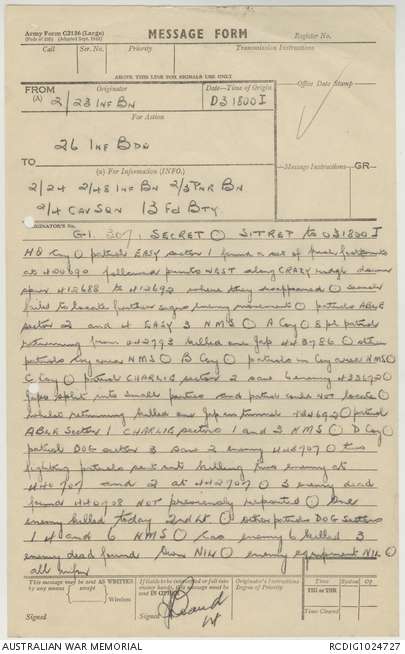 Army Form C2136 (Large)
MESSAGE FORM
Register No.
Call
Ser. No.
Priority
Transmission Instructions
ABOVE THIS LINE FOR SIGNALS USE ONLY
FROM
(A)
Originator
Date—Time of Origin
Office Date Stamp
2/23 INF BN
031800 I
For Action
26 INF BDE
TO
(W) For Information (INFO.)
Message Instructions
GR
2/24 2/48 INF BN 2/3 PNR BN
2/4 CAV SQN 13 Fd BTY
ORIGINATOR'S No.
G1 307 SECRET () SITREP to 031800 I
HQ Coy () patrol EASY sector 1 found a set of fresh footprints
at 400690 followed prints WEST along CRAZY ridge down
spur 412688 to 412692 where they disappeared () search
failed to locate further signs enemy movement () patrols ABLE
sector 2 and 4 EASY 3 NMS () A Coy () 8 pl patrol
returning from 042793 killed one Jap 443786 () other
patrols Coy area NMS () B Coy () patrols in Coy area NMS ()
C Coy () patrol CHARLIE sector 2 saw 6 enemy 423692 ()
Japs split into small parties and patrol could not locate ()
whilst returning killed one Jap in tunnel 424692 () patrol
ABLE Sector 1 CHARLIE sectors 1 and 3 NMS () D Coy ()
patrol DOG sector 3 saw 2 enemy 442707 () two
fighting patrols sent out killing two enemy at
440707 and 2 at 442707 () 3 enemy dead
found 442708 NOT previously reported ()
enemy killed today () other patrols DOG sectors
1 4 and 6 NMS () Cas enemy 6 killed 3
enemy dead found Own NIL () enemy equipment NIL ()
all infm
This message may be sent AS WRITTEN
by any means.
Wireless
If liable to be intercepted or fall into
enemy hands, this message must be
sent IN CIPHER
Originator's Instructions
Degree of Priority
Time
System
Op
THI or TOR
Time Cleared
Signed
Signed
Lt
AUSTRALIAN WAR MEMORIAL
RCDIG1024727